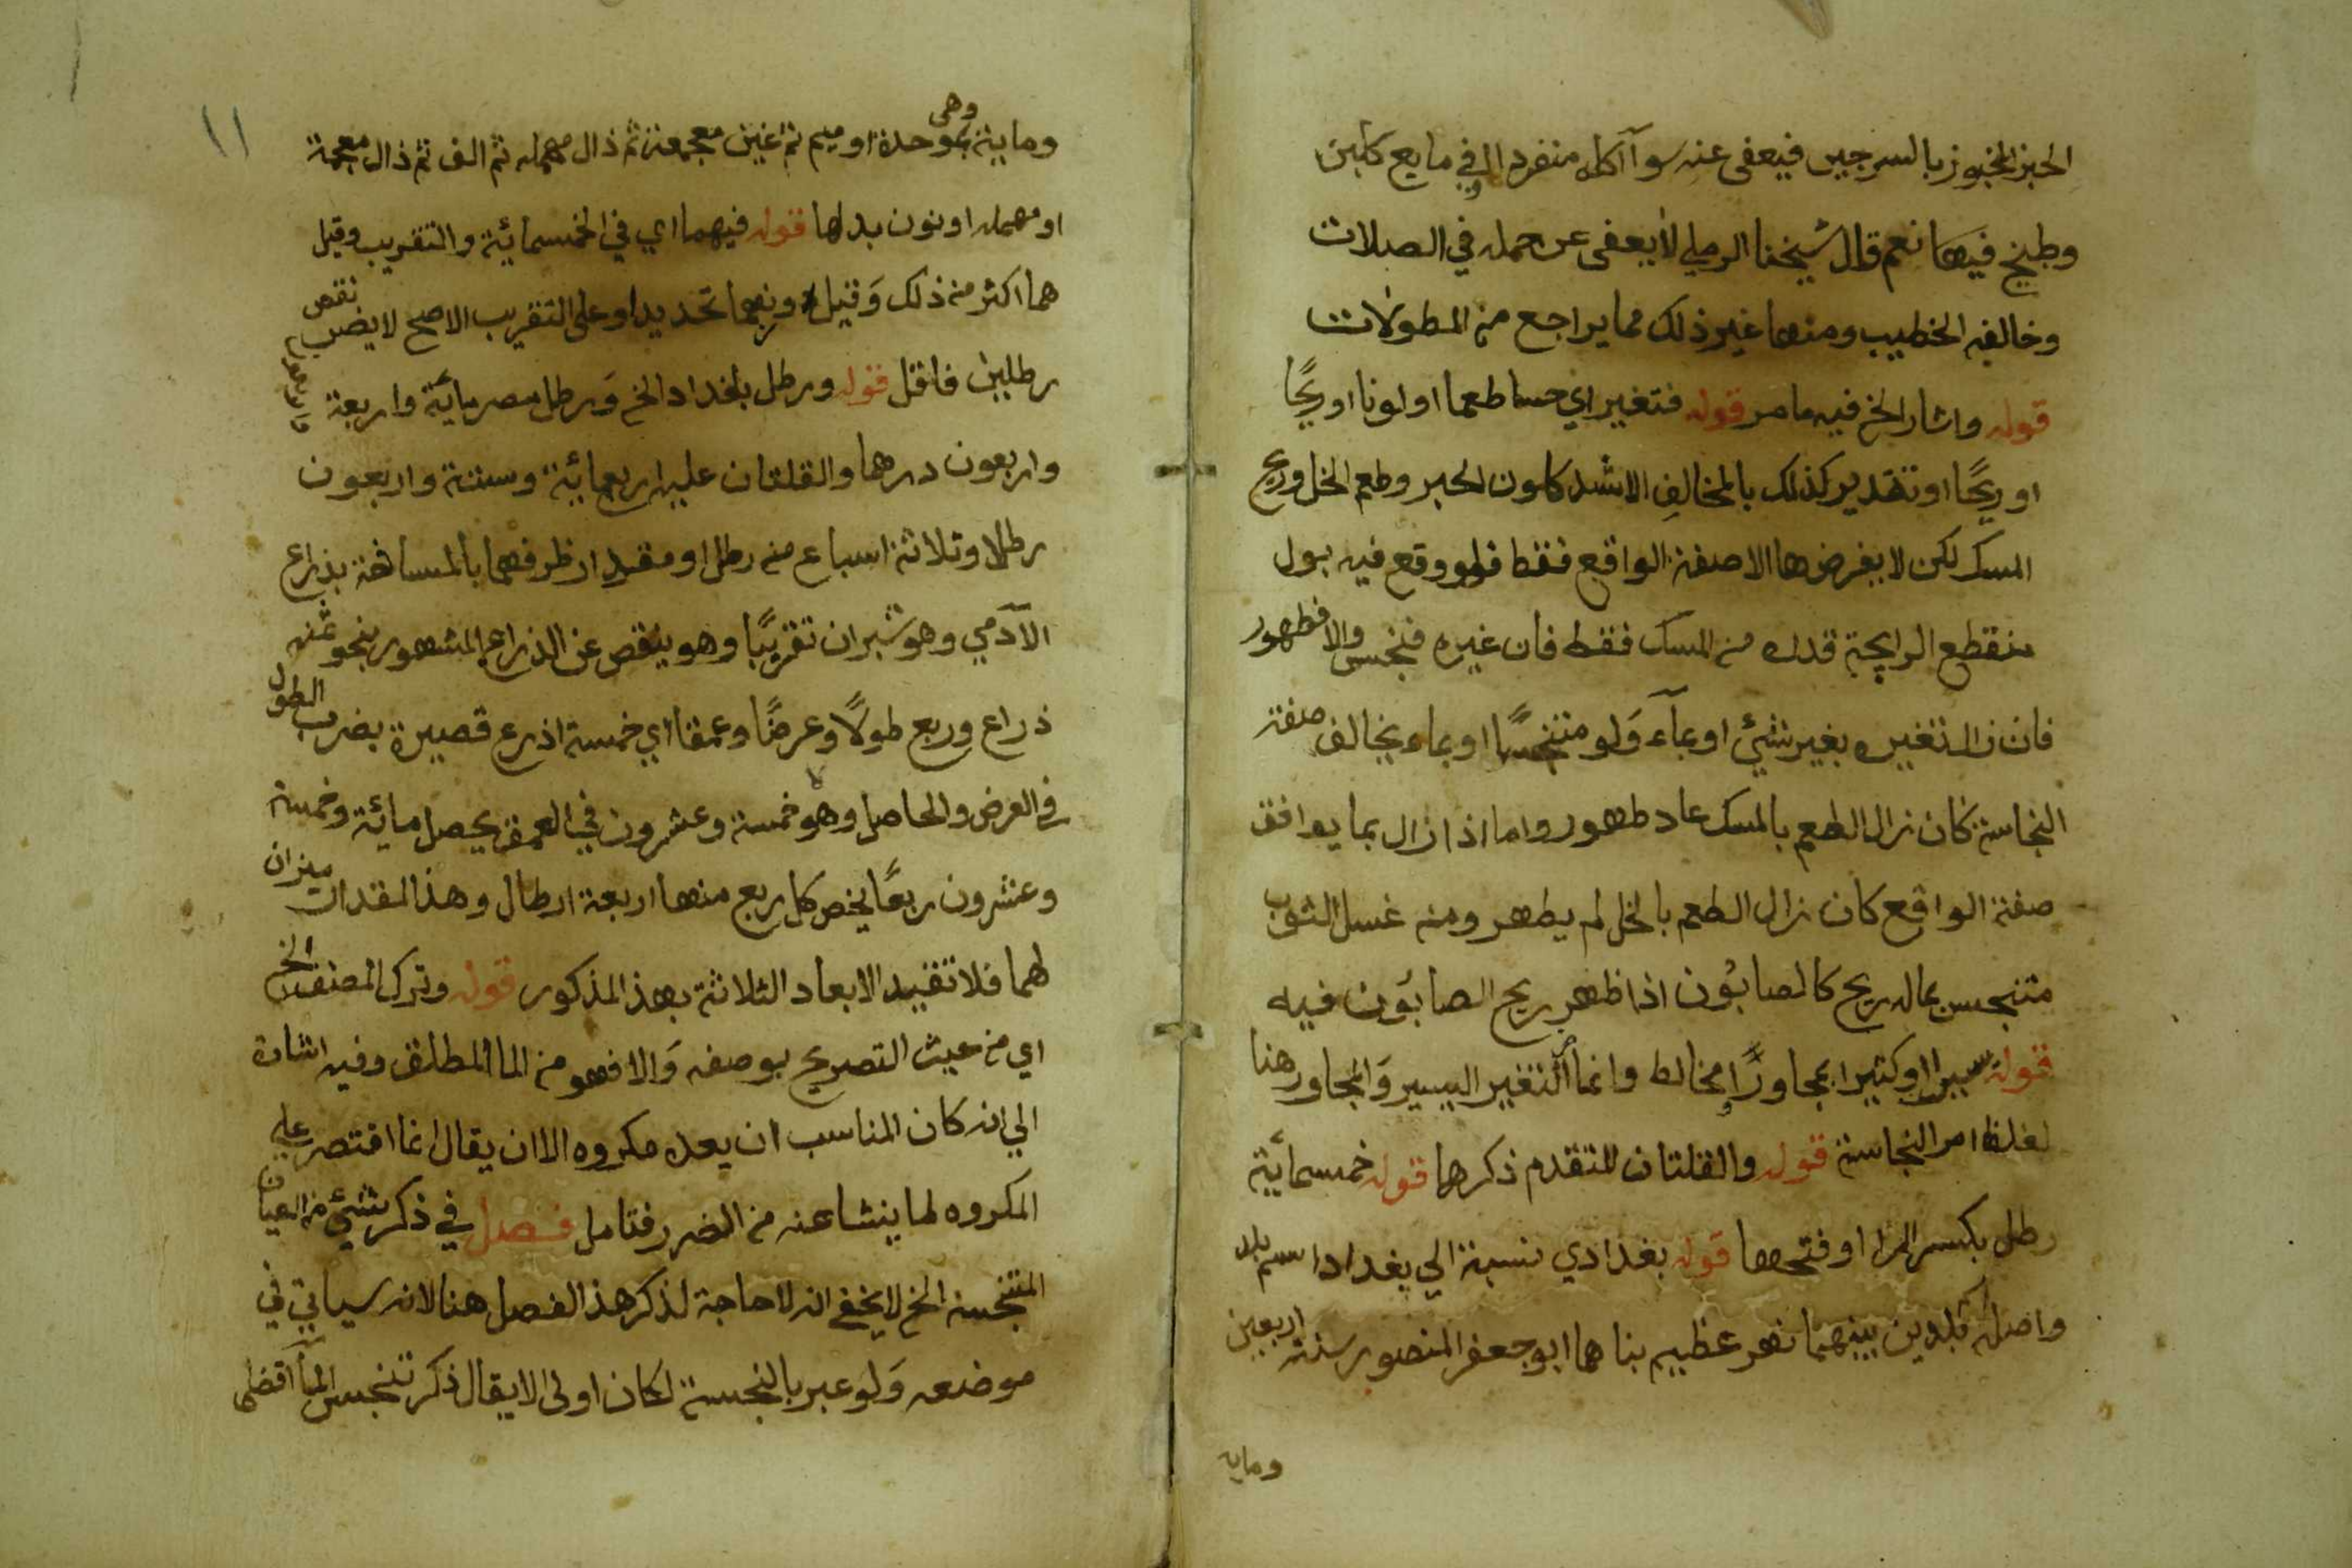 الخبز المخبوز بالسرجين فيعفى عنه سوآ آكله منفرد ا او في مايع كلبن
وطبيخ فيهما نعم قال شيخنا الرملي لا يعفى عن حمله في الصلات
وخالفه الخطيب ومنها غير ذلك مما يراجع من المطولات
قوله واشار الخ فيه ما مر قوله فتغير اي حسا طعما او لونا او ريحًا
او ريحًا او تقدير كذلك بالمخالف الاشد كلون الحبر وطعم الخل وريح
المسك لكن لا يفرض ها الا صفة الواقع فقط فلو وقع فيه بول
منقطع الرايحة قدره من المسك فقط فان غيره فنجس والا فطهور
فان زال تغيره بغير شئ او بمآء وَلو متنجسًا او بماء يخالف صفة
النجاسة كان زال الطعم بالمسك عاد طهور واما اذا زال بما يوافق
صفة الواقع كان زال الطعم بالخل لم يطهر ومنه غسل الثوب
متنجس بماله ريح كالصابون اذا ظهر ريح الصابون فيه
قوله يسيرا او كثيرا بمجاورًا ومخالط وانما اثر التغير اليسير وَالمجاور هنا
لغلظ امر النجاسة قوله والقلتان المتقدم ذكرها قوله خمسمائة
رطل بكسر الرا او فتحها قوله بغدادي نسبة الي بغداد اسم بلد
واصله بلدين بينهما نهر عظيم بناها ابو جعفر المنصور سنة اربعين
ومايه
١١
وماية وهى بموحدة او ميم ثم غين معجمة ثم ذال مهمله ثم الف ثم ذال معجمة
او مهمله او نون بدلها قوله فيهما اي في الخمسمائة والتقريب وقيل
هما اكثر من ذلك وَقيل دونهما تحديدا وعلى التقريب الاصح لا يضر نقص
رطلين فاقل قوله ورطل بغداد الخ وَرطل مصر مائة واربعة
واربعون درهما والقلتان عليه اربعمائة وستة واربعون
رطلا وثلاثة اسباع من رطل او مقدار ظرفهما بالمساحة بذراع
الآدمي وهو شبران تقريبًا وهو ينقص عن الذراع المشهور بنحو ثمنه
ذراع وربع طولًا وعرضًا وعمقا اي خمسة اذرع قصيرة بضرب الطول
في العرض والحاصل وهو خمسة وعشرون في العمق يحصل مائة وخمسة
وعشرون ربعًا يخص كل ربع منها اربعة ارطال وهذا المقدار ميزان
لهما فلا تقيد الابعاد الثلاثة بهذ المذكور قوله وترك المصنف الخ
اي من حيث التصريح بوصفه وَالا فهو من الما المطلق وفيه اشارة
الي انه كان المناسب ان يعده مكروه الا ان يقال انما اقتصر عليه
المكروه لما ينشا عنه من الضرر فتامل فصل في ذكر شئ من الاعيان
المتنجسة الخ لا يخفي انه لا حاجة لذكر هذ الفصل هنا لانه سياتي في
موضعه وَلو عبر بالنجسة لكان اولى الا يقال ذكر تنجس الما اقتضى